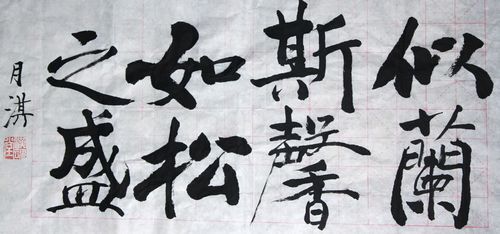 似蘭
斯馨
如松
之盛
月淇